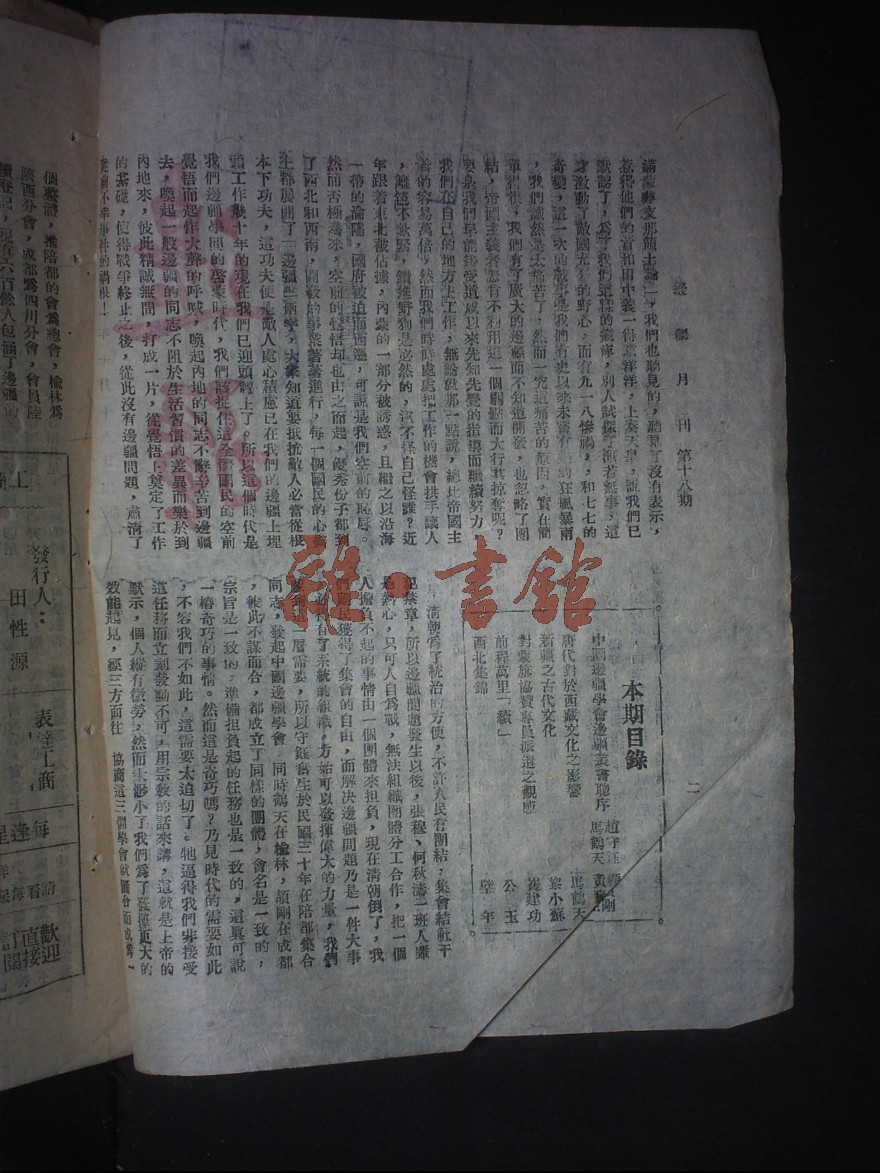 邊疆月刊 第十八期
二
滿蒙非支那領土論」，我們也聽見的，聽見了沒有表示，
惹得他們的首相田中義一得意洋洋，上奏天皇，說我們已
默認了，爲了我們這樣的癱瘓，別人試探了演若無事，這
才激動了敵國尤大的野心，而有九一八慘禍，和七七的
奇變，這一次的戰爭是我們有史以來未嘗有過的狂風暴雨
，我們誠然是太痛苦了，然而一究這痛苦的原因，實在簡
單得很，我們有了廣大的邊疆而不知道開發，也忽略了團
結，帝國主義者怎有不利用這一個弱點而大行其掠奪呢？
要是我們早能接受道咸以來先知先覺的指導而繼續努力
我們在自己的地方上工作，無論做那一點說，總比帝國主
義的容易萬倍，然而我們時時處處把工作的機會拱手讓人
，籬笆不紮緊，鑽進野狗是必然的，這不怪自己怪誰？近
年跟着東北被佔據，內蒙的一部分被誘惑，且繼之以沿海
一帶的淪陷，國府被迫而西遷，可說是我們空前的恥辱。
然而否極泰來，空前的覺悟却也由之而起，優秀份子都到
了西北和西南，開發的事業著著進行，每一個國民的心靈
上都展開了「邊疆」兩字，大家知道要抵抗敵人必當從根
本下功夫，這功夫便是敵人處心積慮已在我們的邊疆上埋
頭工作幾十年的現在我們已迎頭趕上了。所以這個時代是
我們邊疆學開的啓蒙時代，我們該捉住這全體國民的空前
覺悟而起作大聲的呼喊，喚起內地的同志不辭辛苦到邊疆
去，喚起一般邊疆的同志不阻於生活習慣的差異而樂於到
內地來，彼此精誠無間，打成一片，從覺悟上奠定了工作
的基礎，使得戰爭終止之後，從此沒有邊疆問題，肅清了
從前不幸事件的禍根！
本期目錄
中國邊疆學會邊疆叢書總序
唐代對於西藏文化之影響 馬鶴天
新疆之古代文化 黎小蘇
對蒙旗協贊專員派遣之觀感 崔建功
前程萬里「續」 公玉
西北集錦 壁年
清朝爲了統治的方便，不許人民有團結，集會結社干
犯禁章，所以邊疆問題發生以後，張穆、何秋濤一班人雖
是熱心，只可人自爲戰，無法組織團體分工合作，把一個
人擔負不起的事情由一個團體來担負，現在清朝倒了，我
們國民獲得了集會的自由，而解决邊疆問題乃是一件大事
，必得有了系統的組織，方始可以發揮偉大的力量，我們
感到這一層需要，所以守鈺舊生於民國三十年在陪都集合
同志，發起中國邊疆學會，同時鶴天在榆林，頡剛在成都
，彼此不謀而合，都成立了同樣的團體，會名是一致的，
宗旨是一致的，準備担負起的任務也是一致的，這眞可說
一樁奇巧的事情。然而這是奇巧嗎？乃見時代的需要如此
，不容我們不如此，這需要太迫切了。牠逼得我們非接受
這任務而立刻發動不可，用宗敎的話來講，這就是上帝的
默示，個人縱有微勞，然而太渺小了我們爲了發揮更大的
效能起見，經三方面往 協商這三個學會就獨合而成爲一
個整體，推陪都的會爲總會，榆林爲
陝西分會，成都爲四川分會，會員陸
發行人：田性源
表達工商
每逢星
歡迎直接訂閱